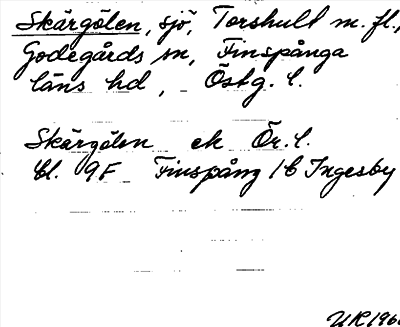 Skärgölen, sjö, Torshult m. fl.,
Godegårds sn, Finspånga
läns hd, Östg. l.
Skärgölen ek Ör. l.
bl. 9F Finspång 1b Ingesby